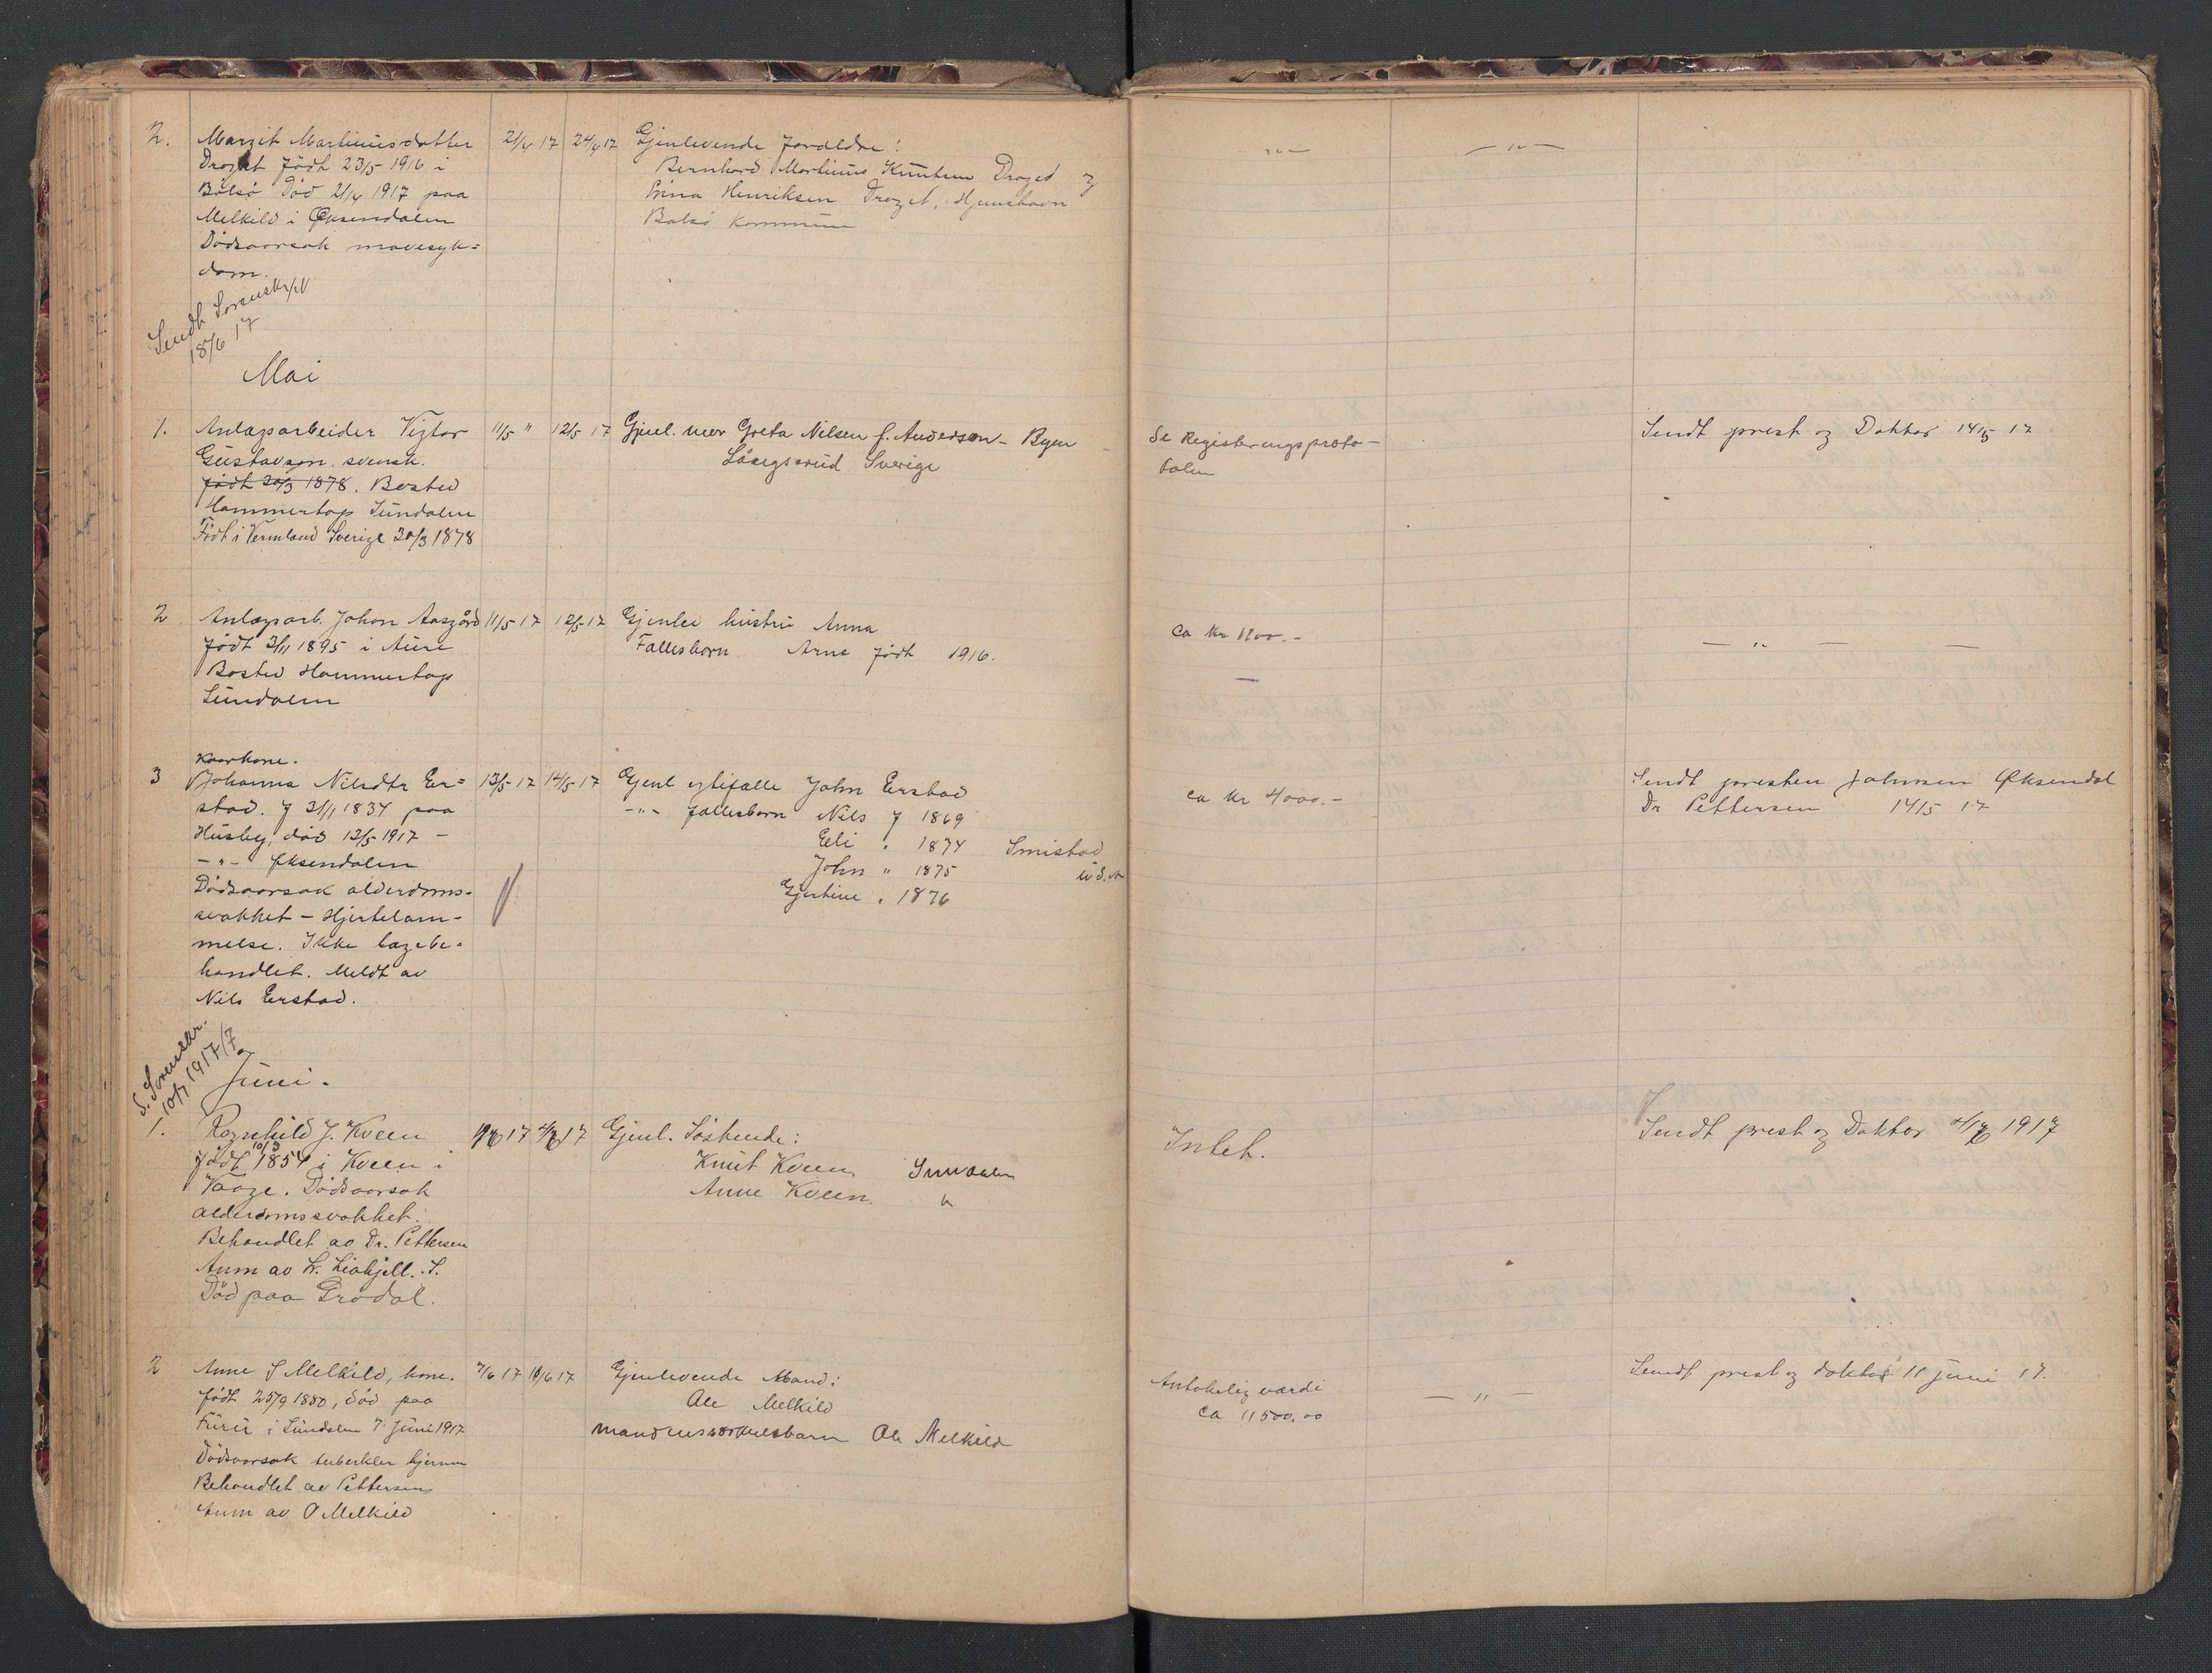 2. Margit Martinusdatter 21/4 17 24/4 17 Gjenlevende foreldre:
Draget født 23/5 1916 i Bernhard Martinus Knutsen Draged og
Bolsø død 21/4 1917 paa Henriksen Draget, Hjemstavn
Melkild i Øksendalen Bolsø Kommune
Dødsaarsak mavesyk=
dom.
Sendt Sorenskr
18/6 17
Mai
1. Anlægsarbeider Vigtor 11/5 " 12/5 17 Gjenl. mor Greta Nilsen f. Anderson - Byen Se Registreringsproto- Sendt prest og Doktor 14/5 17
Gustavson. svensk. Sverige kolen
født 20/3 1878. Bosted
Hammertop Sundalen
Født i Vermland Sverige 20/3 1878
2 Anlægsarb. Johan Aasgård 11/5 17 12/5 17 Gjenlev hustru Anna ca kr 1100.- — " — —
født 3/11 1895 i Aure Fællesbarn Arne født 1916.
Bosted Hammertop
Sundalen
Kaarkone.
3 Johanna Nilsdtr Er= 13/5 17 14/5 17 Gjenl egtefælle John Erstad ca kr 4000.- Sendt presten Johnsen Øksendal
stad. f 21/1 1834 paa -"- fællesbarn Nils f 1869 Dr Pettersen 14/5 17
Husby, død 13/5 1917 - Eli " 1874 Smistad
-"- Øksendalen John " 1875
Dødsaarsak alderdoms- Gjertine " 1876
svakhet - Hjertelam-
melse. Ikke lægebe-
handlet. Meldt av
Nils Erstad.
S. Sorenskr.
10/7 1917
Juni.
1. Ragnhild J. Kveen 17 17 Gjenl. Søskende: Intet. Sendt prest og Doktor 1917
født 10/3 1854 i Kveen i Knut Kveen Sundalen
Vaage. Dødsaarsak Anne Kveen "
alderdomssvakhet.
Behandlet av Dr. Pettersen
Anm av
Død paa Grødal.
2 Anne S Melkild, kone. 7/6 17 11/6 17 Gjenlevende Mand: Antakelig værdi — " — Sendt prest og doktor 11 juni 17.
født 25/9 1880, død paa Ole Melkild ca 11500,00
Furu i Sundalen 7 Juni 1917 Ole Melkild
Dødsaarsak tuberkler hjernen
Behandlet av Pettersen
Anm av O Melkild